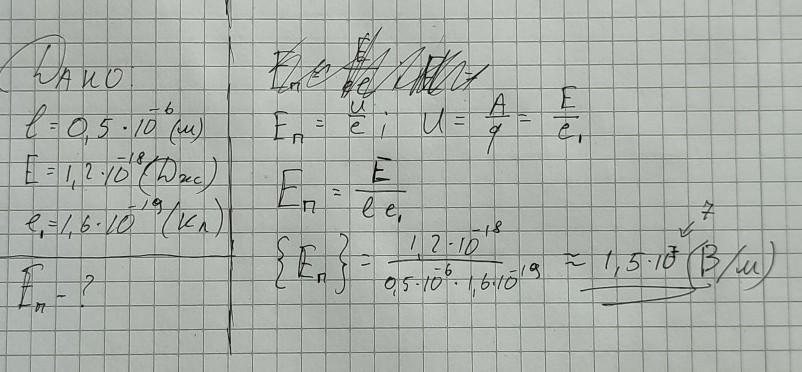 Дано:
l = 0,5 · 10⁻⁶ (м)
E = 1,2 · 10⁻¹⁸ (Дж)
e₁ = 1,6 · 10⁻¹⁹ (Кл)
Eп - ?
Eп = U/l ; U = A/q = E/e₁
Eп = E/(l e₁)
7
{Eп} = (1,2 · 10⁻¹⁸)/(0,5 · 10⁻⁶ · 1,6 · 10⁻¹⁹) ≈ 1,5 · 10⁷ (В/м)